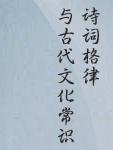 诗词格律
与古代文化常识